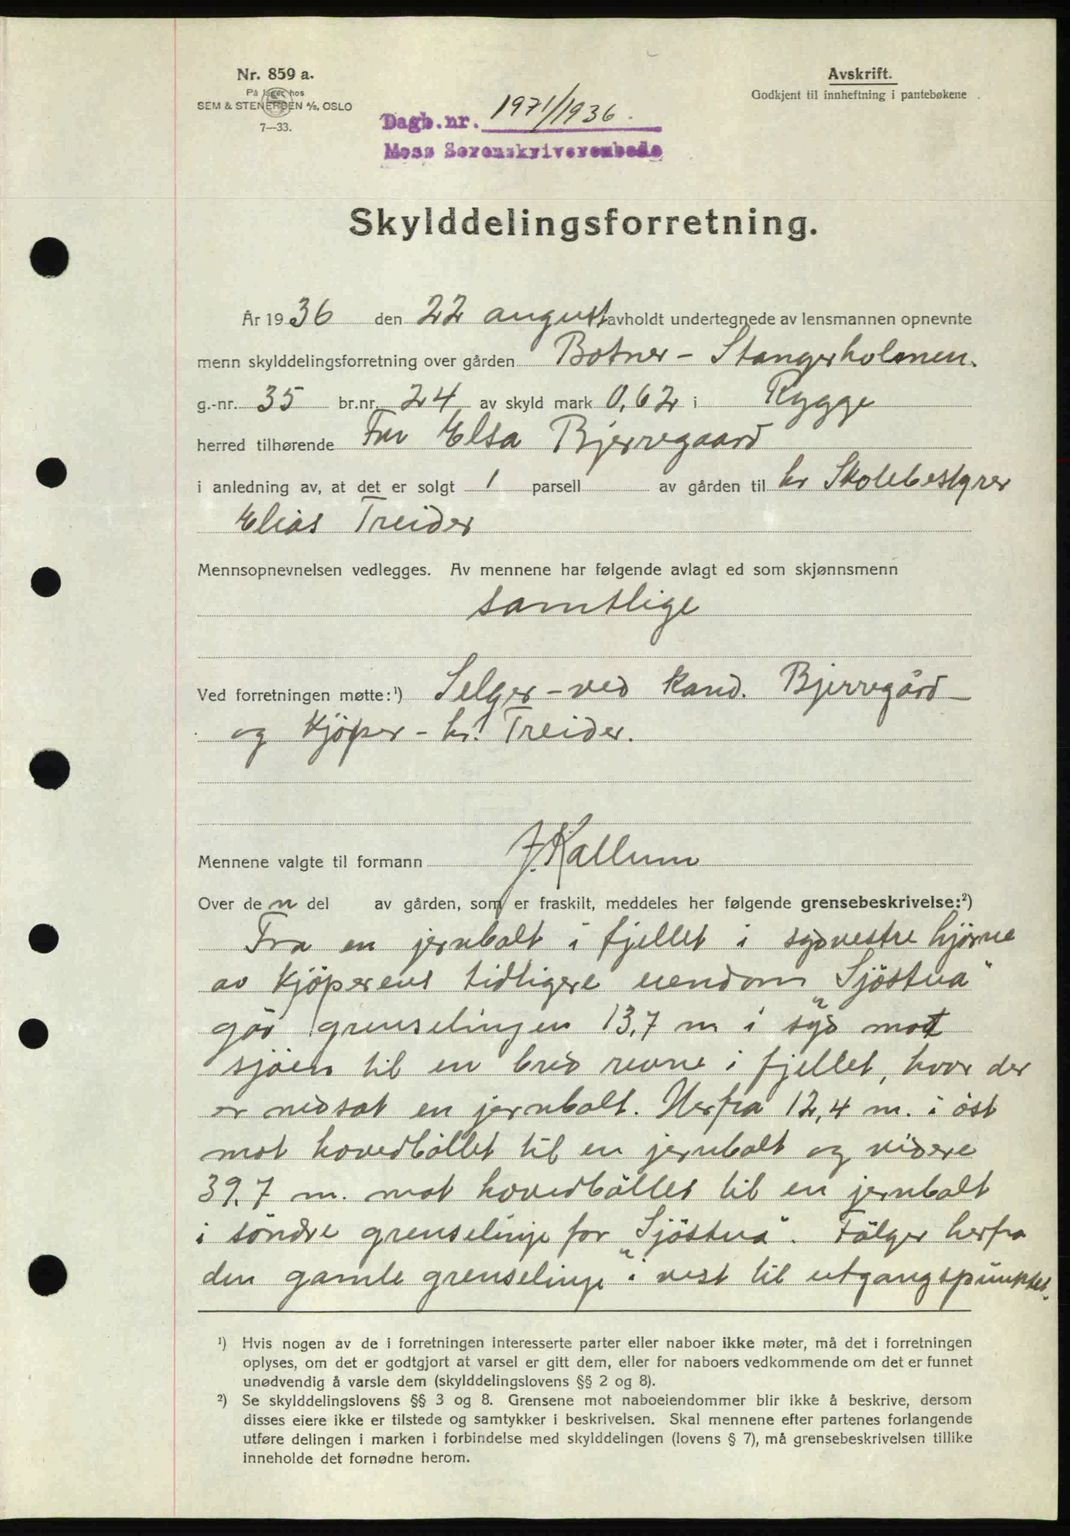 Nr. 859 a.
På lager hos
SEM & STENERSEN A/S, OSLO
7—33.
Avskrift.
Godkjent til innheftning i pantebøkene.
Dagb.nr. 1971/1936.
Moss Sorenskriverembede
Skylddelingsforretning.
År 1936 den 22 august avholdt undertegnede av lensmannen opnevnte
menn skylddelingsforretning over gården Botner - Stangerholmen.
g.-nr. 35 br.nr. 24 av skyld mark 0,62 i Rygge
herred tilhørende Fru Elsa Bjerregaard
i anledning av, at det er solgt 1 parsell av gården til hr Skolebestyrer
Elias Treider
Mennsopnevnelsen vedlegges. Av mennene har følgende avlagt ed som skjønnsmenn
samtlige
Ved forretningen møtte:¹) Selger - ved kand. Bjerregård -
og Kjöper - hr. Treider.
Mennene valgte til formann J. Kallum
Over den del av gården, som er fraskilt, meddeles her følgende grensebeskrivelse:²)
Fra en jernbolt i fjellet i sydvestre hjörne
av kjöperens tidligere eiendom "Sjöstua"
går grenselinjen 13,7 m i syd mot
sjöen til en bred revne i fjellet, hvor der
er nedsat en jernbolt. Herfra 12,4 m. i öst
mot hovedböllet til en jernbolt og videre
39,7 m. mot hovedböllet til en jernbolt
i söndre grenselinje for "Sjöstua". Fölger herfra
den gamle grenselinje i vest til utgangspunktet.
¹) Hvis nogen av de i forretningen interesserte parter eller naboer ikke møter, må det i forretningen
oplyses, om det er godtgjort at varsel er gitt dem, eller for naboers vedkommende om det er funnet
unødvendig å varsle dem (skylddelingslovens §§ 2 og 8).
²) Se skylddelingslovens §§ 3 og 8. Grensene mot naboeiendommer blir ikke å beskrive, dersom
disses eiere ikke er tilstede og samtykker i beskrivelsen. Skal mennene efter partenes forlangende
utføre delingen i marken i forbindelse med skylddelingen (lovens § 7), må grensebeskrivelsen tillike
inneholde det fornødne herom.